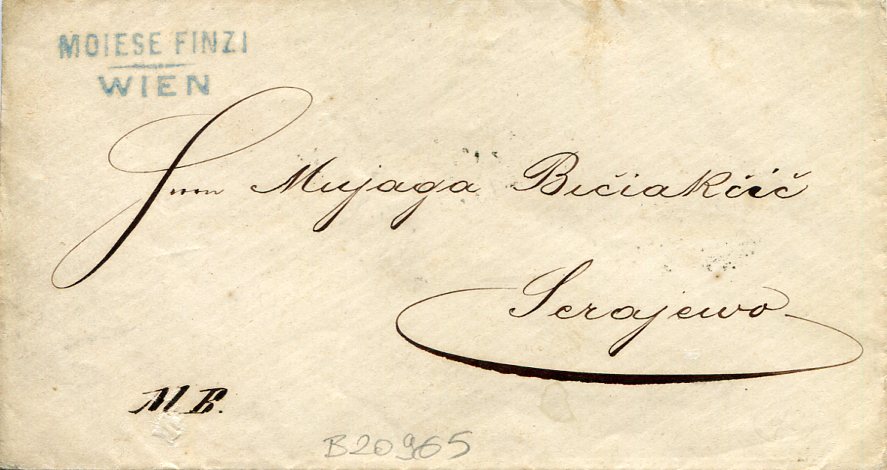 MOIESE FINZI
WIEN
Herrn Mujaga Bičiakčič
Serajewo
M B.
B20965